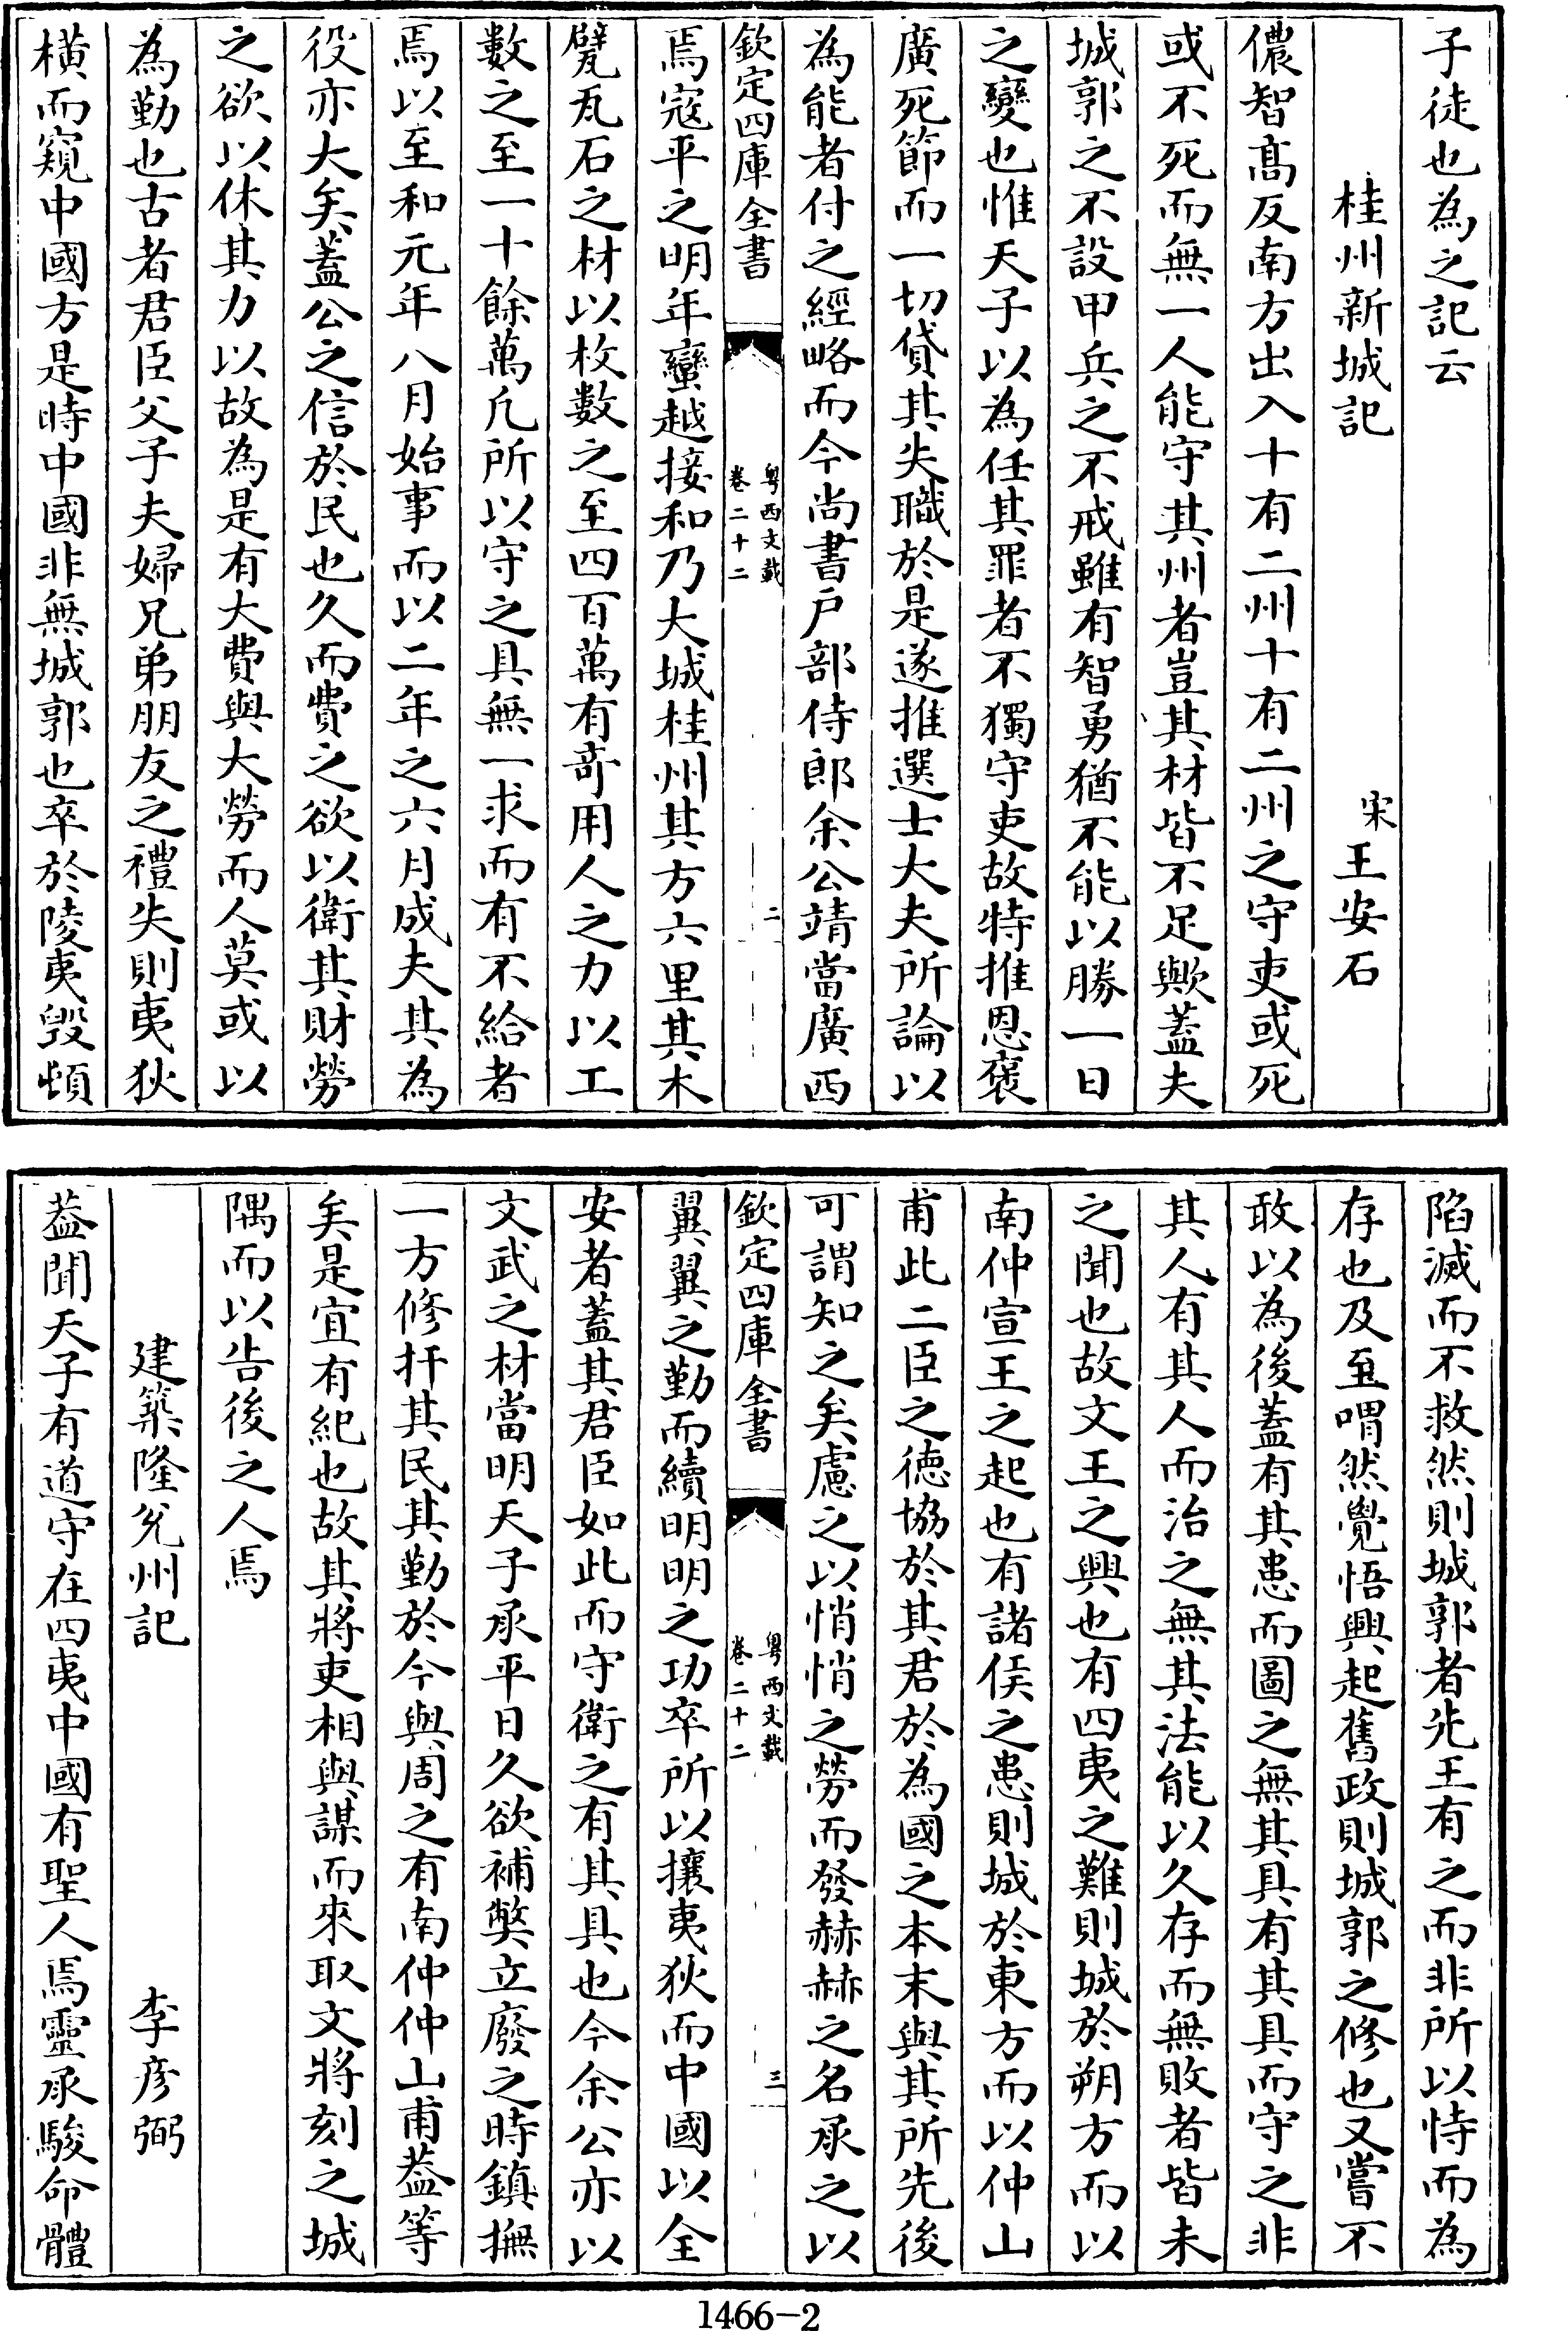 子徒也為之記云
桂州新城記
宋王安石
儂智高反南方出入十有二州十有二州之守吏或死
或不死而無一人能守其州者豈其材皆不足歟蓋夫
城郭之不設甲兵之不戒雖有智勇猶不能以勝一日
之變也惟天子以為任其罪者不獨守吏故特推恩褒
廣死節而一切貸其失職於是遂推選士大夫所論以
為能者付之經略而今尚書戸部侍郎余公靖當廣西
欽定四庫全書
粵西文載
卷二十二
二
焉寇平之明年蠻越接和乃大城桂州其方六里其木
甓瓦石之材以枚數之至四百萬有竒用人之力以工
數之至一十餘萬凢所以守之具無一求而有不給者
焉以至和元年八月始事而以二年之六月成夫其為
役亦大矣蓋公之信於民也久而費之欲以衛其財勞
之欲以休其力以故為是有大費與大勞而人莫或以
為勤也古者君臣父子夫婦兄弟朋友之禮失則夷狄
橫而窺中國方是時中國非無城郭也卒於陵夷毁頓
陷滅而不救然則城郭者先王有之而非所以恃而為
存也及至喟然覺悟興起舊政則城郭之修也又嘗不
敢以為後蓋有其患而圖之無其具有其具而守之非
其人有其人而治之無其法能以久存而無敗者皆未
之聞也故文王之興也有四夷之難則城於朔方而以
南仲宣王之起也有諸侯之患則城於東方而以仲山
甫此二臣之徳協於其君於為國之本末與其所先後
可謂知之矣慮之以悄悄之勞而發赫赫之名承之以
欽定四庫全書
粵西文載
卷二十二
三
翼翼之勤而續明明之功卒所以攘夷狄而中國以全
安者蓋其君臣如此而守衛之有其具也今余公亦以
文武之材當明天子承平日久欲補弊立廢之時鎮撫
一方修扞其民其勤於今與周之有南仲仲山甫葢等
矣是宜有紀也故其將吏相與謀而來取文將刻之城
隅而以告後之人焉
建築隆兊州記
李彦弼
葢聞天子有道守在四夷中國有聖人焉靈承駿命體
1466-2